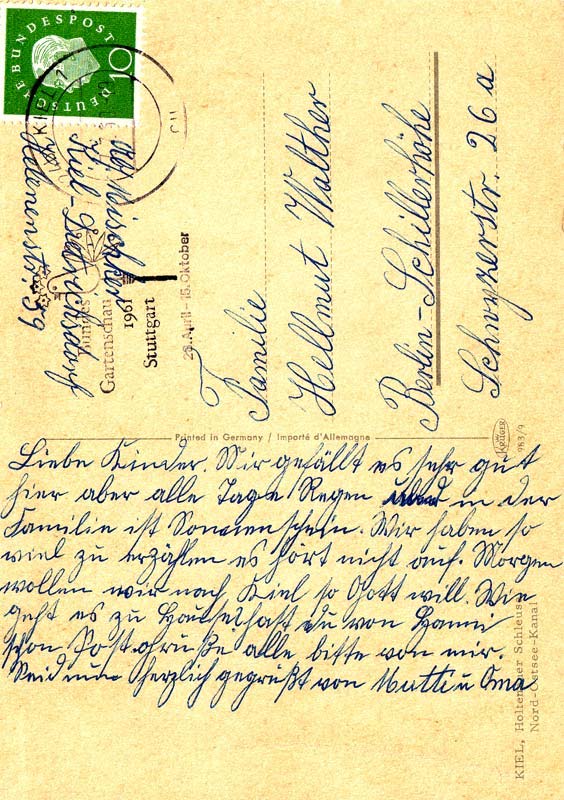 DEUTSCHE BUNDESPOST
10
KIEL
Bundes
Gartenschau
1961
Stuttgart
28. April - 15. Oktober
Kiel-Friedrichsdorf
39
Familie
Hellmut Walther
Berlin-Schillerhöhe
Schwyzerstr. 26 a
Printed in Germany / Importé d'Allemagne
KRÜGER
983/9
Liebe Kinder. Mir gefällt es sehr gut
hier aber alle Tage Regen in der
Familie ist Sonnenschein. Wir haben so
viel zu erzählen es hört nicht auf. Morgen
wollen wir nach Kiel so Gott will. Wie
geht es zu Hause hast du von Hanni
schon Post grüße alle bitte von mir.
Seid nun herzlich gegrüßt von Mutti u Oma
KIEL, Holtenauer Schleuse
Nord-Ostsee-Kanal